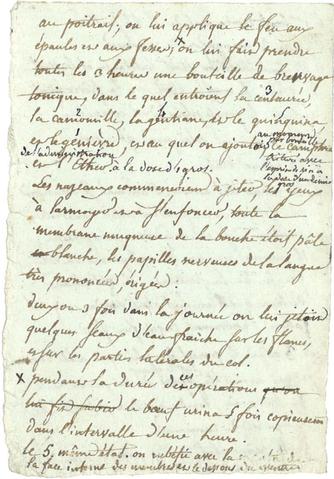 au poitrail, on lui applique le feu aux
épaules et aux fesses, on lui fait prendre
toutes les 3 heures une bouteille de breuvage
tonique, dans le quel entroient la centaurée,
la camomille, la gentiane, et le quinquina
et le génièvre, et au quel on ajoutoit le camphre
au moment
de l'administration
et l'Ether à la dose d'1 gros.
Les nazeaux commencèrent à jeter, les yeux
à larmoyer et à s'enfoncer, toute la
membrane muqueuse de la bouche étoit pâle
blanche, les papilles nerveuses de la langue
très prononcées, érigées.
deux ou 3 fois dans la journée on lui jetoit
quelques seaux d'eau fraiche sur les flancs,
et sur les parties latérales du col.
x pendant la durée de ces opérations
lui fit subir le bœuf urina 5 fois copieusement
dans l'intervalle d'une heure.
le 5, même état. on rubéfie avec le
la face interne des membres et le dessous du